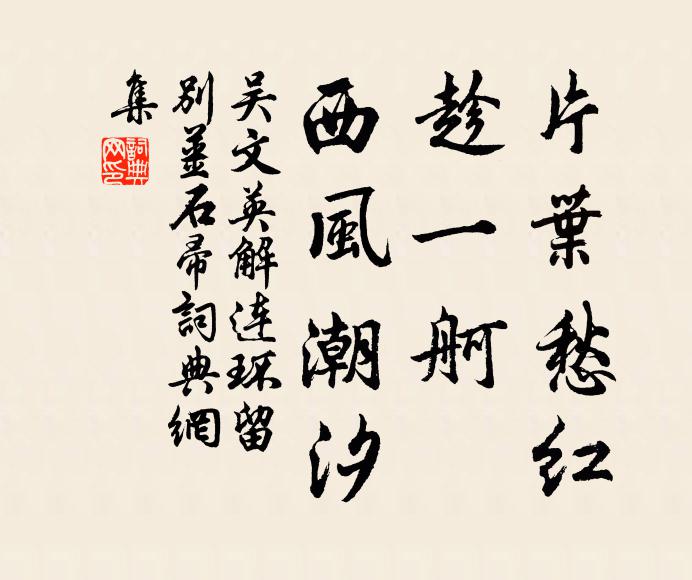 片葉愁红
趁一舸
西風潮汐
吴文英解连环留
别薑石帚詞典網
集
詞典
网印